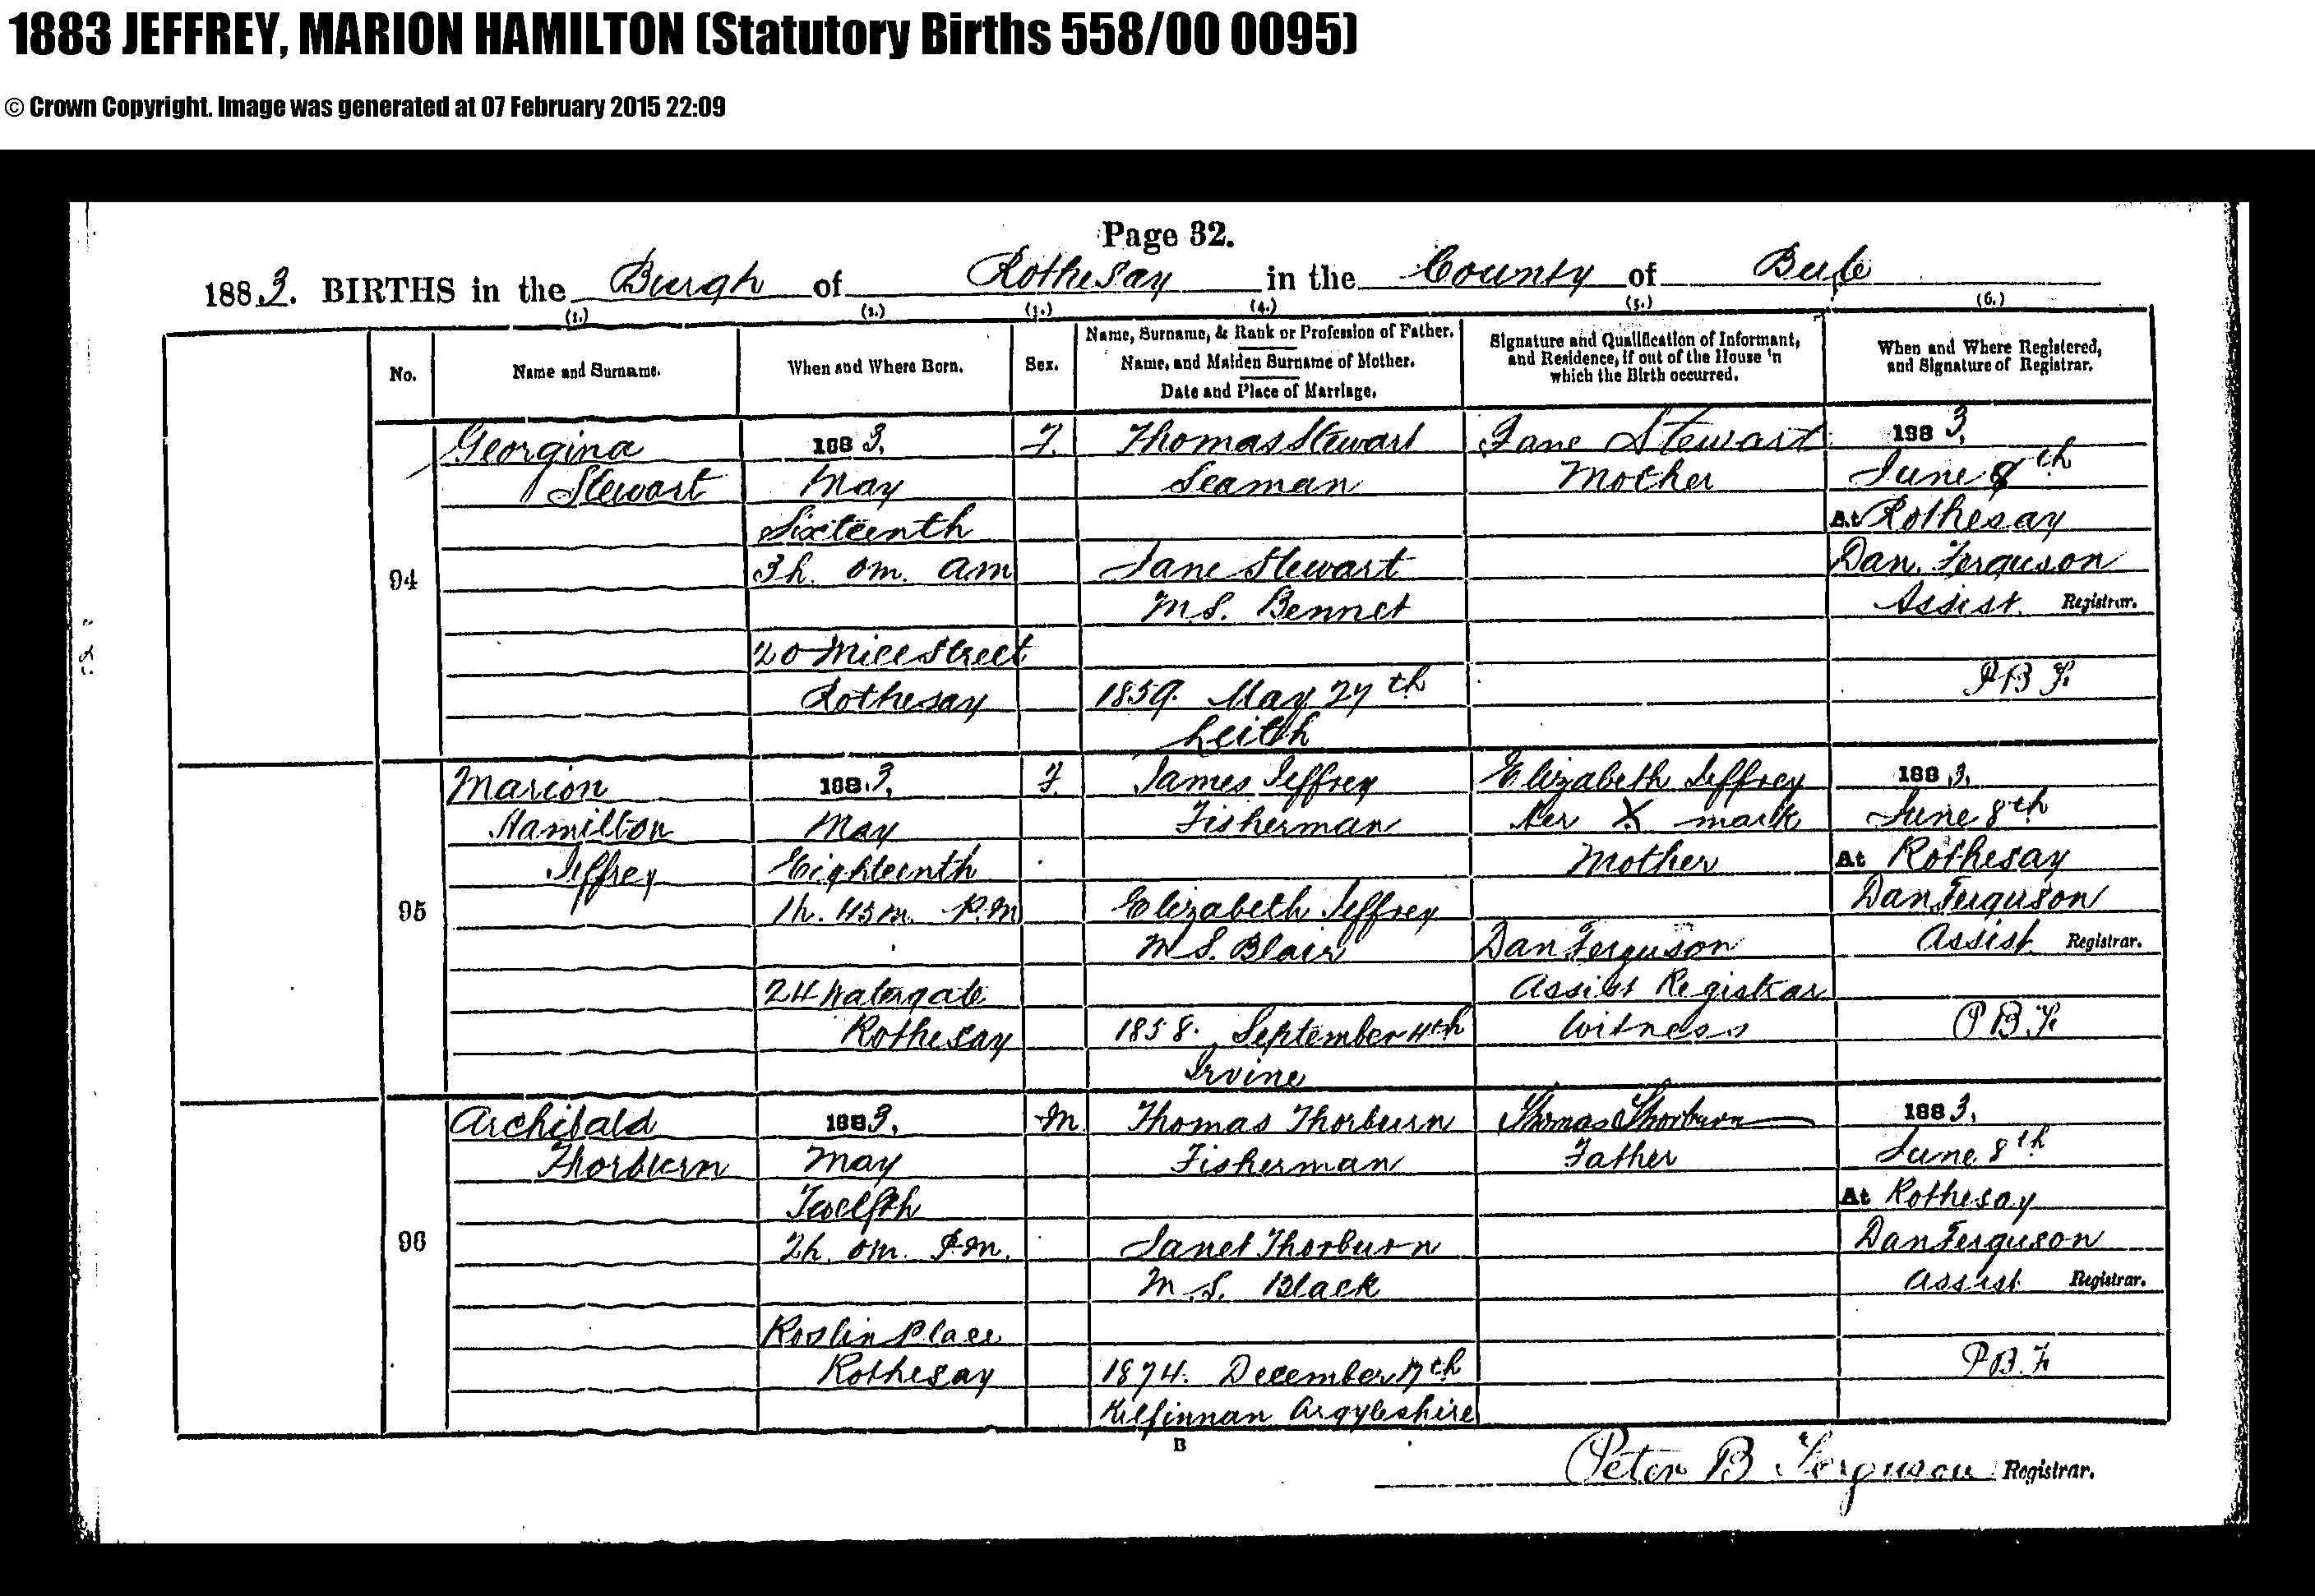 1883 JEFFREY, MARION HAMILTON (Statutory Births 558/00 0095)
© Crown Copyright. Image was generated at 07 February 2015 22:09
Page 32.
1883. BIRTHS in the Burgh of Rothesay in the County of Bute
(1.) (2.) (3.) (4.) (5.) (6.)
No.
Name and Surname.
When and Where Born.
Sex.
Name, Surname, & Rank or Profession of Father.
Name, and Maiden Surname of Mother.
Date and Place of Marriage.
Signature and Qualification of Informant,
and Residence, if out of the House in
which the Birth occurred.
When and Where Registered,
and Signature of Registrar.
94
Georgina
Stewart
1883,
May
Sixteenth
3h. 0m. am
20 Mill Street
Rothesay
F.
Thomas Stewart
Seaman
Jane Stewart
M.S. Bennet
1859. May 27th
Leith
Jane Stewart
Mother
1883,
June 8th
At Rothesay
Dan. Ferguson
Assist. Registrar.
P B F.
95
Marion
Hamilton
Jeffrey
1883,
May
Eighteenth
1h. 45m. P.M
24 Watergate
Rothesay
F.
James Jeffrey
Fisherman
Elizabeth Jeffrey
M S. Blair
1858. September 4th
Irvine
Elizabeth Jeffrey
Her X mark
Mother
Dan Ferguson
Assist Registrar
Witness
1883,
June 8th
At Rothesay
Dan Ferguson
Assist. Registrar.
P B F.
96
Archibald
Thorburn
1883,
May
Twelfth
2h. 0m. P.M.
Roslin Place
Rothesay
M
Thomas Thorburn
Fisherman
Janet Thorburn
M.S. Black
1874. December 17th
Kilfinnan Argyleshire
Thomas Thorburn
Father
1883,
June 8th
At Rothesay
Dan Ferguson
Assist. Registrar.
P B. F.
B
Peter B Ferguson Registrar.